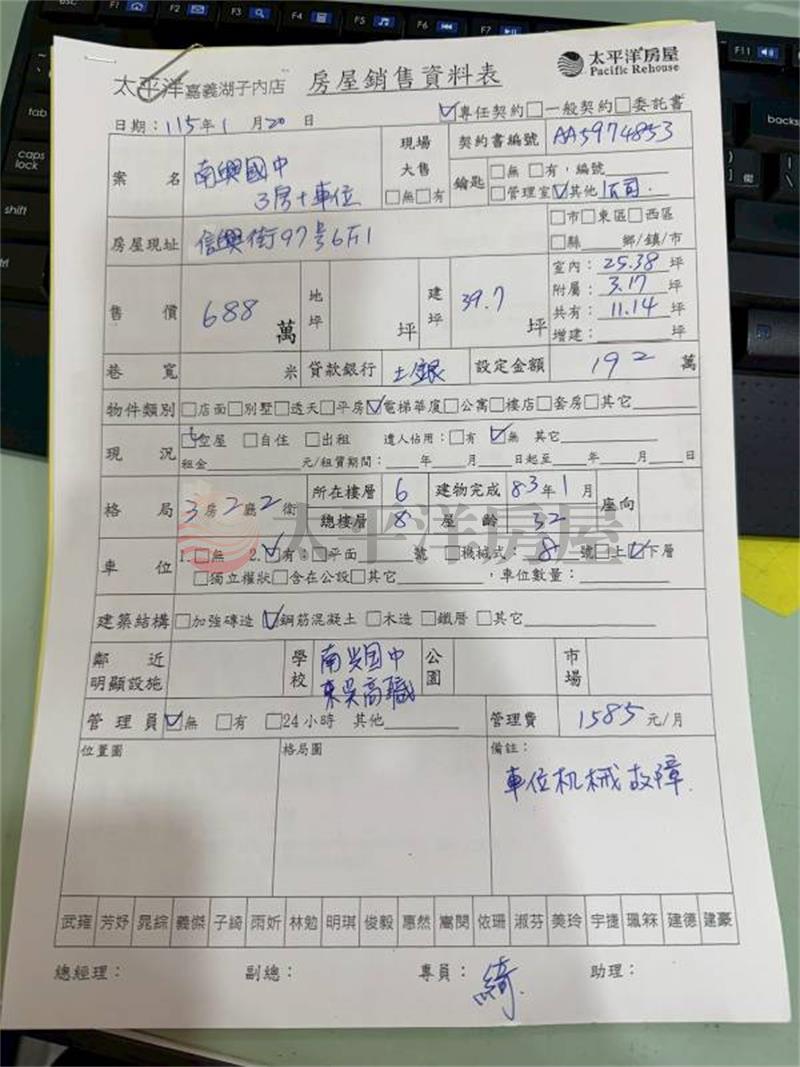 太平洋嘉義湖子內店 房屋銷售資料表 太平洋房屋
Pacific Rehouse
日期：115年1月20日 ☑專任契約□一般契約□委託書
案名 南興國中 3房+車位 現場大售 □無□有 契約書編號 AA5974853
鑰匙 □無 □有，編號
□管理室☑其他 公司
房屋現址 信興街97號6F1 □市□東區□西區
□縣 鄉/鎮/市
售價 688萬 地坪 坪 建坪 39.7坪
室內：25.38坪
附屬：3.17坪
共有：11.14坪
增建：坪
巷寬 米 貸款銀行 土銀 設定金額 192萬
物件類別 □店面□別墅□透天□平房☑電梯華廈□公寓□樓店□套房□其它
現況 ☑空屋 □自住 □出租 遭人佔用：□有 ☑無 其它
租金 元/租賃期間： 年 月 日起至 年 月 日
格局 3房2廳2衛 所在樓層 6 建物完成 83年1月 座向
總樓層 8 屋齡 32
車位 1.□無 2.☑有：□平面 號 □機械式：8號□上☑下層
□獨立權狀□含在公設□其它 ，車位數量：
建築結構 □加強磚造 ☑鋼筋混凝土 □木造 □鐵厝 □其它
鄰近明顯設施 學校 南興國中 東吳高職 公園 市場
管理員 ☑無 □有 □24小時 其他 管理費 1585元/月
位置圖 格局圖 備註：
車位机械故障
武雍 芳妤 晁綜 義傑 子綺 雨妡 林勉 明琪 俊毅 惠然 嵩閔 依珊 淑芬 美玲 宇捷 珮箖 建德 建豪
總經理： 副總： 專員：綺 助理：
太平洋房屋